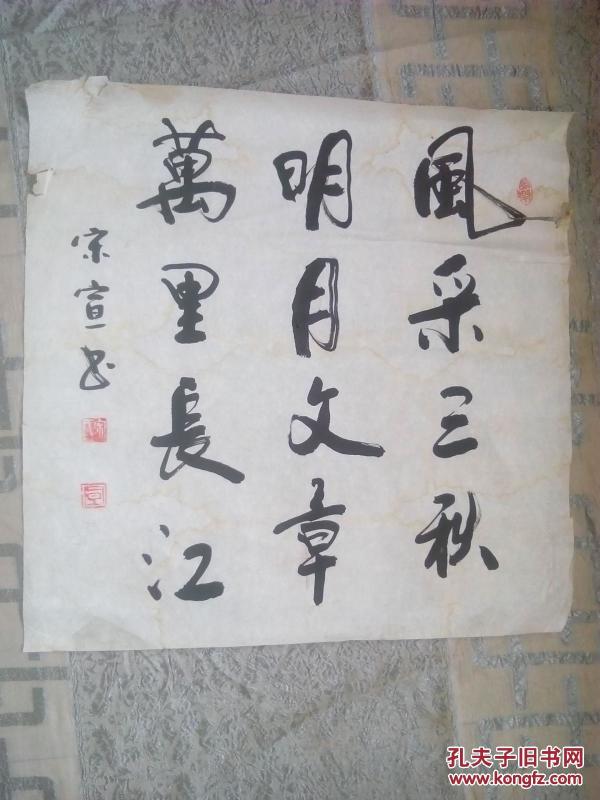 風采三秋
明月文章
萬里長江
宗宣书
孔夫子旧书网
www.kongfz.com